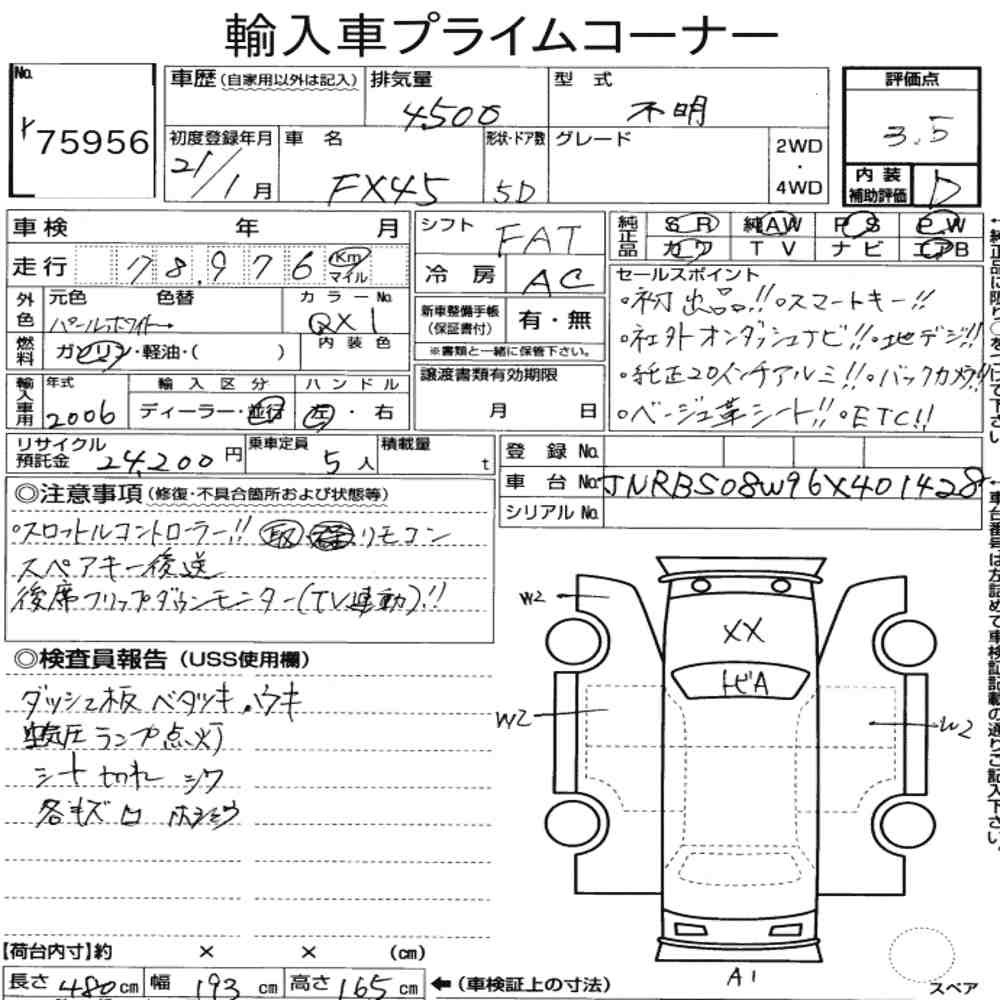 輸入車プライムコーナー
No. 75956
車歴(自家用以外は記入) 排気量 4500 型式 不明
初度登録年月 21/1月 車名 FX45 形状・ドア数 5D グレード 2WD・4WD
評価点 3.5
内装補助評価 D
車検 年 月
走行 178,976 Km マイル
外色 元色 パールホワイト 色替 カラーNo. QX1
燃料 ガソリン・軽油・( ) 内装色
輸入車用 年式 2006 輸入区分 ディーラー・並行 ハンドル 左・右
リサイクル預託金 24,200円 乗車定員 5人 積載量 t
シフト FAT
冷房 AC
新車整備手帳(保証書付) 有・無
※書類と一緒に保管下さい。
譲渡書類有効期限
月 日
純正品 SR 純AW PS PW
カワ TV ナビ エアB
セールスポイント
・初出品!!・スマートキー!!
・社外オンダッシュナビ!!・地デジ!!
・純正20インチアルミ!!・バックカメラ!!
・ベージュ革シート!!・ETC!!
登録No.
車台No. JNRBS08W96X401428
シリアルNo.
◎注意事項(修復・不具合箇所および状態等)
・スロットルコントローラー!! 取 リモコン
スペアキー後送
後席フリップダウンモニター(TV連動)!!
◎検査員報告(USS使用欄)
ダッシュ板ベタツキ、ウキ
空気圧ランプ点灯
シート切れ シワ
各キズ凹
W2
XX
トビA
W2
W2
A1
スペア
【荷台内寸】約 × × (cm)
長さ 480cm 幅 193cm 高さ 165cm ←(車検証上の寸法)